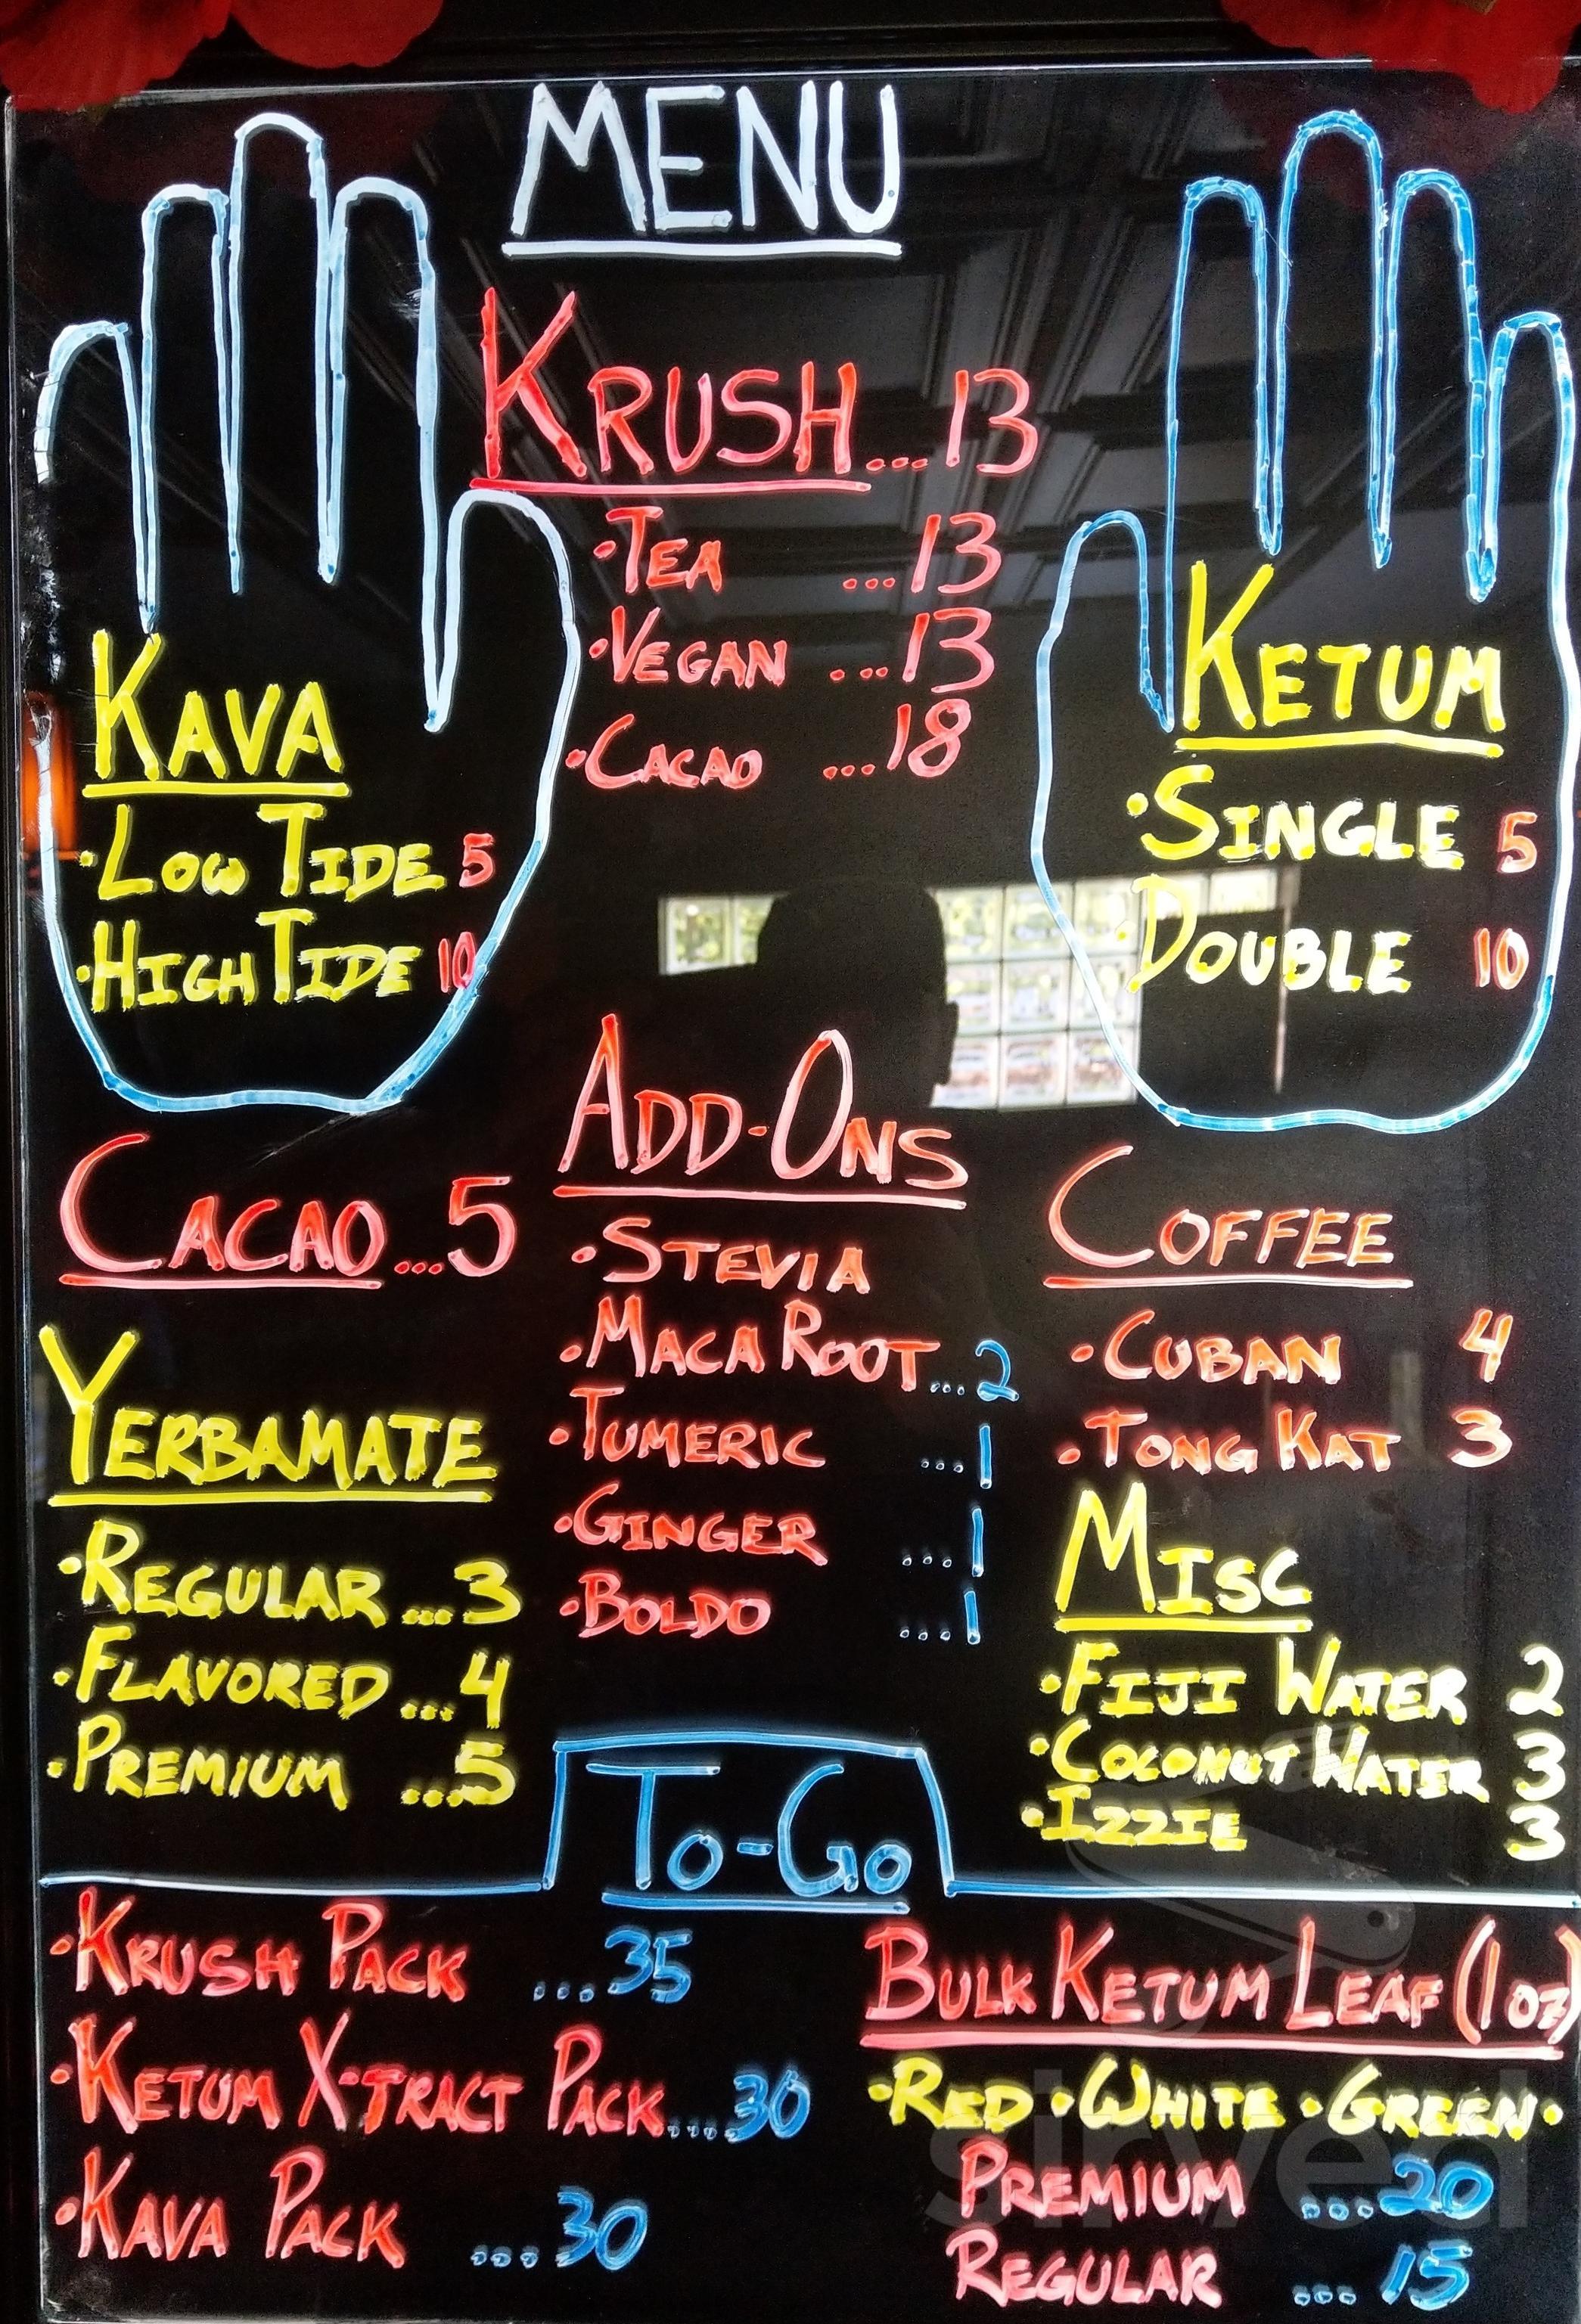 MENU
KRUSH...13
•TEA ...13
•VEGAN ...13
•CACAO ...18
KAVA
•LOW TIDE 5
•HIGH TIDE 10
KETUM
•SINGLE 5
•DOUBLE 10
CACAO...5
YERBAMATE
•REGULAR...3
•FLAVORED...4
•PREMIUM ...5
ADD-ONS
•STEVIA
•MACA ROOT...2
•TUMERIC ...1
•GINGER ...1
•BOLDO ...1
COFFEE
•CUBAN 4
•TONG KAT 3
MISC
•FIJI WATER 2
•COCONUT WATER 3
•IZZIE 3
TO-GO
•KRUSH PACK ...35
•KETUM X-TRACT PACK...30
•KAVA PACK ...30
BULK KETUM LEAF (1oz)
•RED •WHITE •GREEN•
PREMIUM ...20
REGULAR ...15
sirved